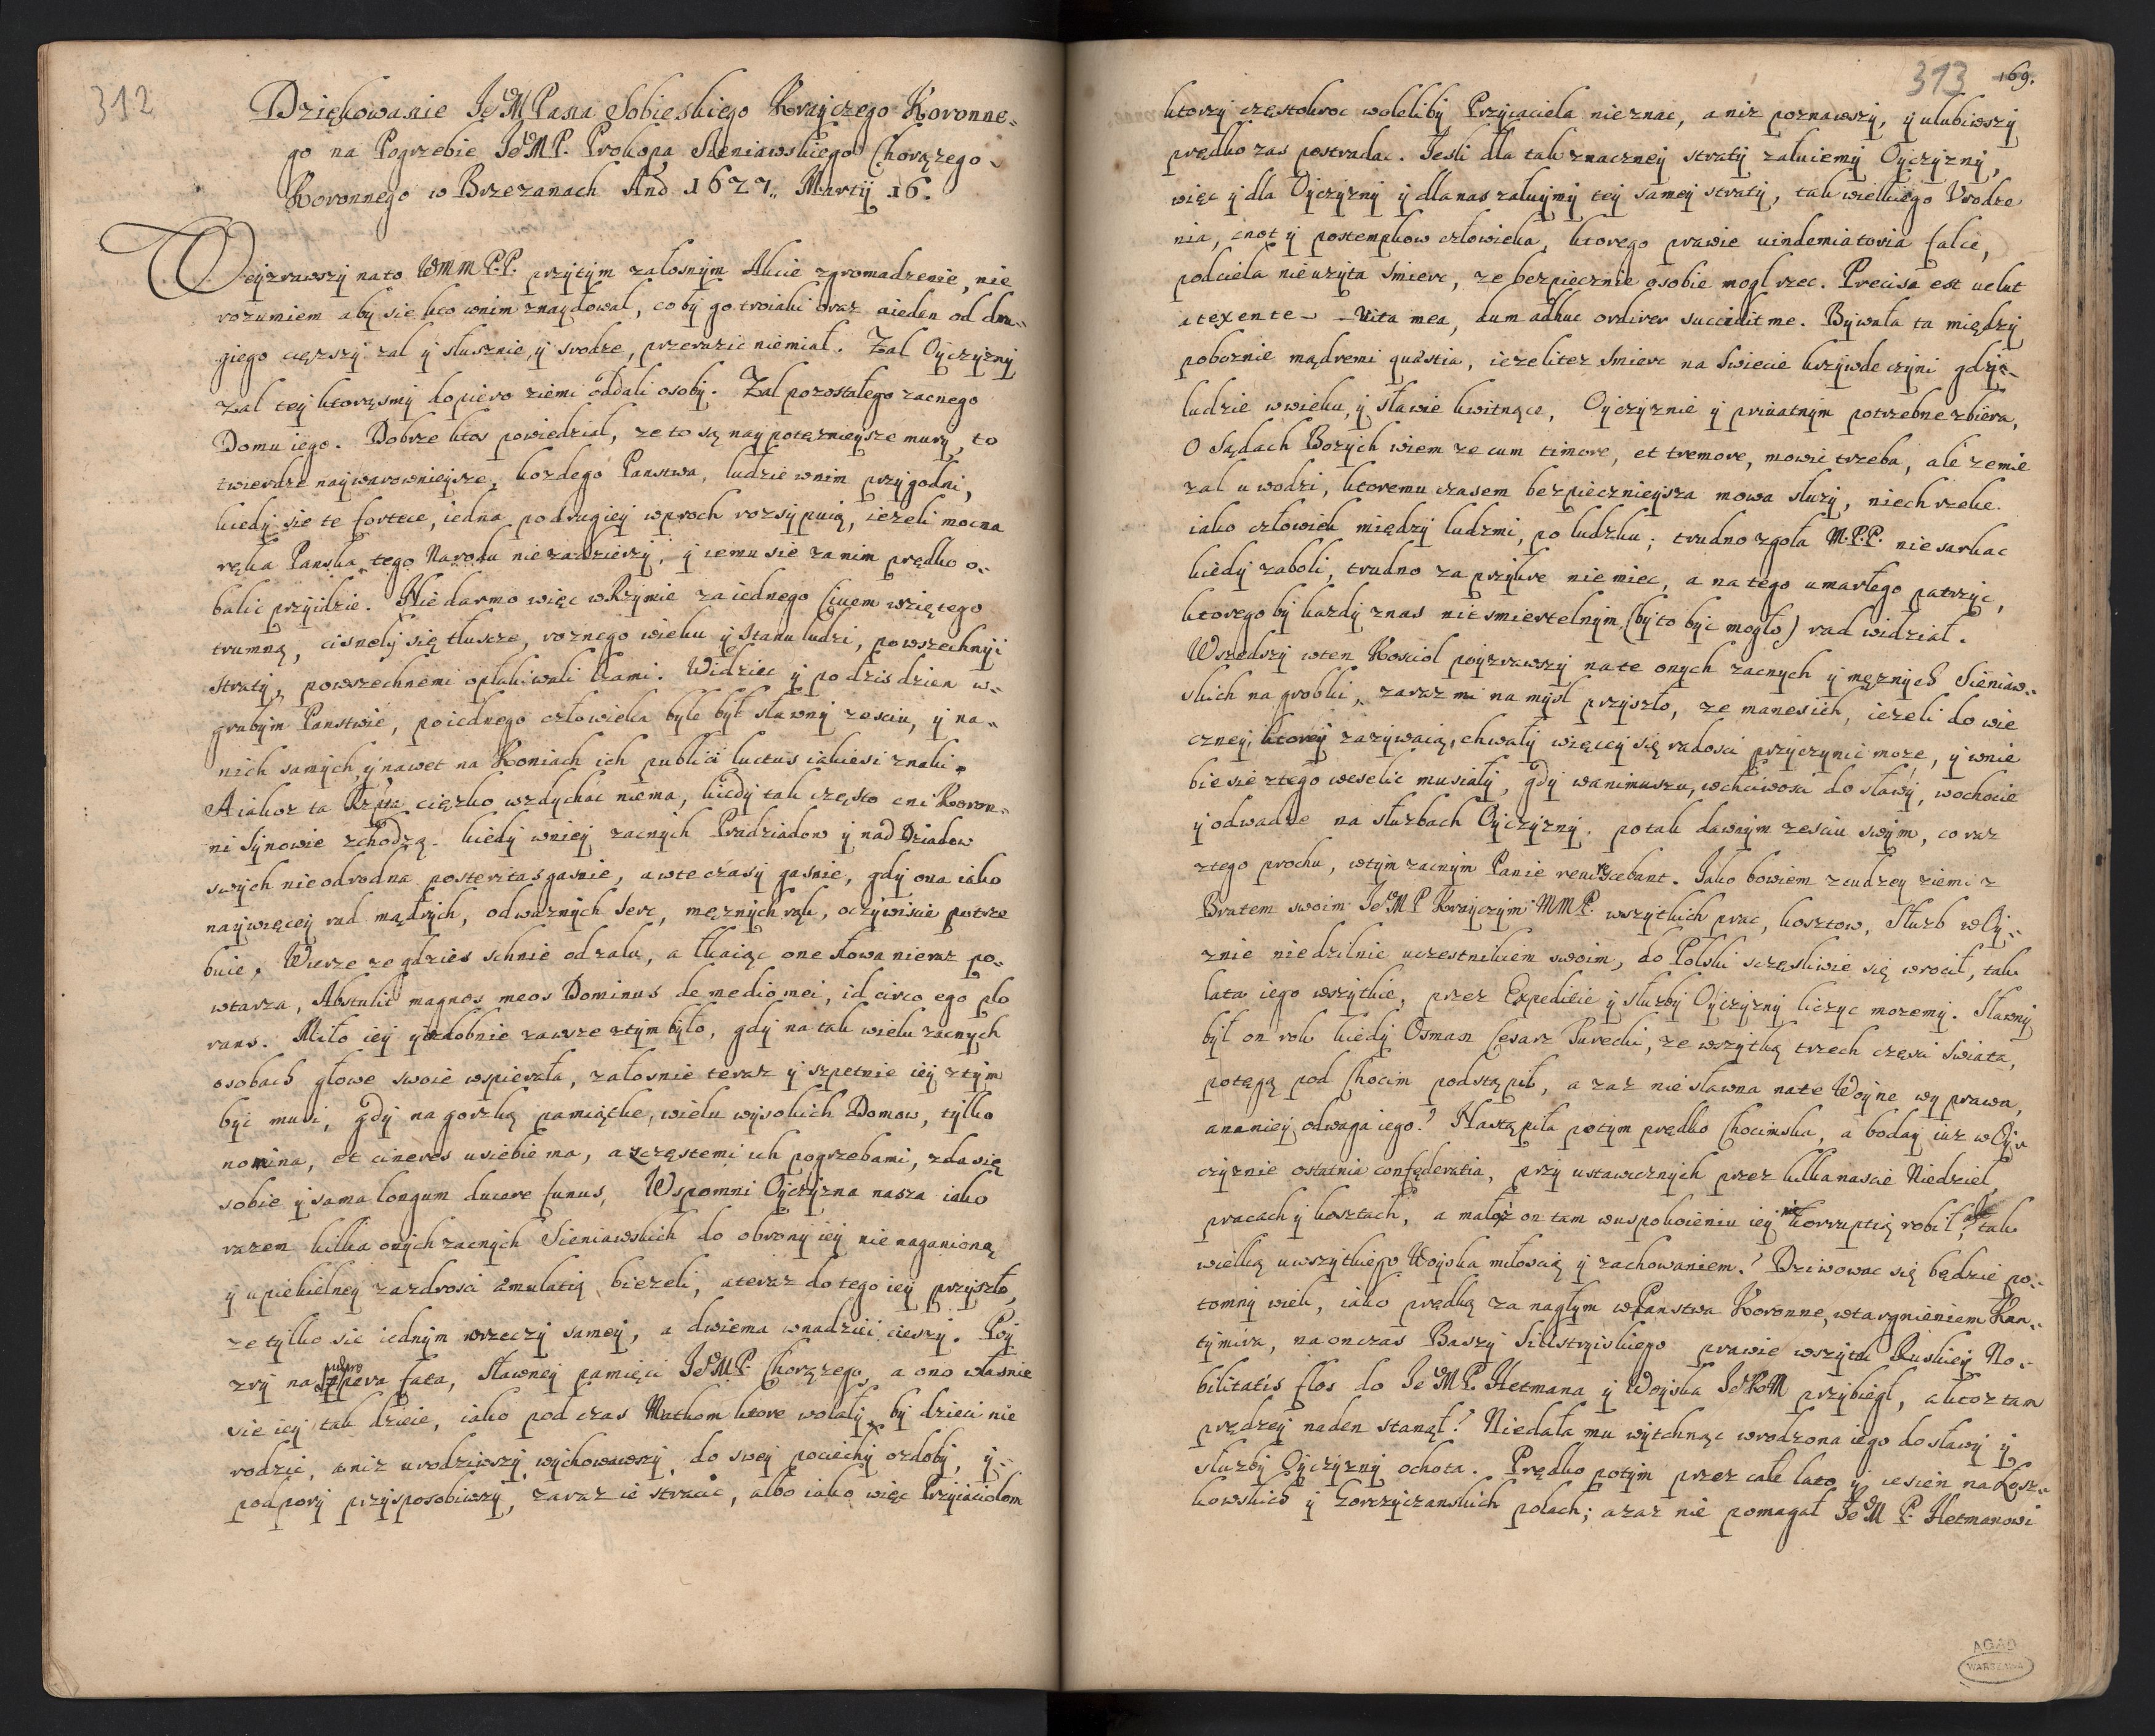 312
Dziękowanie JeMPana Sobieskiego Krayczego Koronne„
go na Pogrzebie JeMP. Prokopa Sieniawskiego Chorązego
Koronnego w Brzezanach And 1627„ Martij 16.
Weyzrawszy na to WMM P.P. przytym załosnym Akcie zgromadzenie, nie
rozumiem aby się kto wnim znaydował, coby go troiaki oraz aieden od dru„
giego cięzszy zal y słusznie, y srodze, przerazic niemiał. Zal Oyczyzny
Zal tey ktorąsmy dopiero ziemi oddali osoby. Zal pozostałego zacnego
Domu iego. Dobrze ktos powiedział, ze to są naypotęznieysze mury, to
twierdze naywarownieysze, kozdego Panstwa, ludzie wnim przygodni,
kiedy się te fortece, iedna podrugiey wproch rozsypuią, iezeli mocna
ręka Panska tego Narodu niezadzierzy, y iemu się zanim prędko o„
balic przyidzie. Nie darmo więc wRzymie za iednego Ciuem wziętego
trumną, cisnęły się tłuszcze, roznego wieku y stanu ludzi, powszechnyi
straty, powszechnemi opłakiwali łzami. Widziec y po dzis dzien w„
grubym Panstwie, poiednego człowieka byle był sławny zesciu, y na„
nich samych, y nawet na Koniach ich publici luctus iakiesi znaki.
A iakoz ta Rzpta cięzko wzdychac niema, kiedy tak często cni Koron„
ni Synowie zchodzą. kiedy wniey zacnych Pradziadow y nad Dziadow
swych nieodrodna posteritas gasnie, awte czasy gasnie, gdy ona iako
naywięcey rad mądrych, odwaznych serc, męznych rąk, oczywiscie potrze
buie. Wierze ze gdzies schnie od zalu, a łkaiąc one słowa nieraz po„
wtarza, Abstulit magnos meos Dominus de medio mei, id circo ego plo
rans. Miło iey yozdobnie zawsze ztym było, gdy na tak wielu zacnych
osobach głowe swoie wspierała, załosnie teraz y szpetnie iey ztym
byc musi, gdy na gorzką pamiątke, wielu wysokich Domow, tylko
nomina, et cineres usiebie ma, a częstemi ich pogrzebami, zda się
sobie y sama longum ducere funus, Wspomni Oyczyzna nasza iako
razem kilka onych zacnych Sieniawskich do obrony iey nie naganioną
y upiekielney zazdrosci æmulatią biezeli, a teraz do tego iey przyszło,
ze tylko się iednym wrzeczy samey, a dwiema wnadziei cieszy. Poy
zry na pera fata, Sławney pamięci JeMP. Chorązego, a ono własnie
się iey tak dzieie, iako pod czas Matkom ktore wolały by dzieci nie
rodzic, aniz urodziwszy wychowawszy, do swey pociechy ozdoby, y„
podpory przysposobiwszy, zaraz ie stracic, albo iako więc Przyiaciołom
313 169.
ktorzy częstokroc woleliby Przyiaciela nieznac, a niz poznawszy, y ulubiwszy
prędko zas postradac. Jesli dla tak znaczney straty załuiemy Oyczyzny,
więc y dla Oyczyzny y dla nas załuymy tey samey straty, tak wielkiego Urodze
nia, cnot y postempkow człowieka, ktorego prawie uindemiatoria falce,
podcieła nieuzyta smierc, ze bezpiecznie osobie mogł rzec. Precisa est uelut
a texente – Uita mea, dum adhuc ordirer succidit me. Bywała ta między
poboznie mądremi quæstia, iezelitez smierc na swiecie krzywde czyni gdy„
ludzie w wieku, y sławie kwitnące, Oyczyznie y priuatnym potrzebne zbiera,
O sądach Bozych wiem ze cum timore, et tremore, mowic trzeba, ale ze mie
zal uwodzi, ktoremu czasem bezpiecznieysza mowa słuzy, niech rzeke
iako człowiek między ludzmi, po ludzku; trudno zgoła M.P.P. niesarkac
kiedy zaboli, trudno za przykre nie miec, a na tego umarłego patrzyc,
ktorego by kazdy znas nie smiertelnym (by to byc mogło) rad widział.
Wszedszy wten Kosciol poyzrawszy na te onych zacnych y męznych Sieniaw„
skich nagrobki, zaraz mi na mysl przyszło, ze manes ich, iezeli do wie
czney, ktorey zazywaią, chwały więcey się radosci przyczynic moze, y wnie
bie sie ztego weselic musiały, gdy wanimuszu, wchciwosci do sławy, wochocie
y odwadze na słuzbach Oyczyzny, potak dawnym zesciu swym, coraz
ztego prochu, wtym zacnym Panie reuiuiscebant. Jako bowiem zcudzey ziemi z
Bratem swoim JeMP Krayczym MMP. wszytkich prac, kosztow, Słuzb wOy„
znie niedzilnie uczestnikiem swoim, do Polski sczęsliwie się wrocił, tak
lata iego wszytkie, przez Expeditie y słuzby Oyczyzny liczyc mozemy. Sławny
był on rok kiedy Osman Cesarz Turecki, ze wszytką trzech częsci swiata,
potęgą pod Chocim podstąpił, a zaz nie sławna nate Woyne wyprawa,
ananiey odwaga iego? Nastąpiła potym prędko Chocimska, a boday iuz wOy„
czyznie ostatnia confæderatia, przy ustawicznych przez kilkanascie Niedziel,
pracach y kosztach, a małoz on tam wuspokoieniu iey nie korruptią robił, ale tak
wielką uwszytkiego Woyska miłoscią y zachowaniem? Dziwowac się będzie po„
tomny wiek, iako prędką za nagłym wPanstwa Koronne, wtargnieniem Kan„
tymira, na on czas Baszy Silistryiskiego prawie wszytek Ruskiey No„
bilitatis flos do JeMP. Hetmana y Woyska JeKM przybiegł, a ktoz tam
prędzey naden stanął? Niedała mu wytchnąc wrodzona iego do sławy y
słuzby Oyczyzny ochota. Prędko potym przez całe lato y iesien na Łosz„
kowskich y Torczyczanskich polach; azaz nie pomagał JeM P. Hetmanowi
AGAD
WARSZAWA